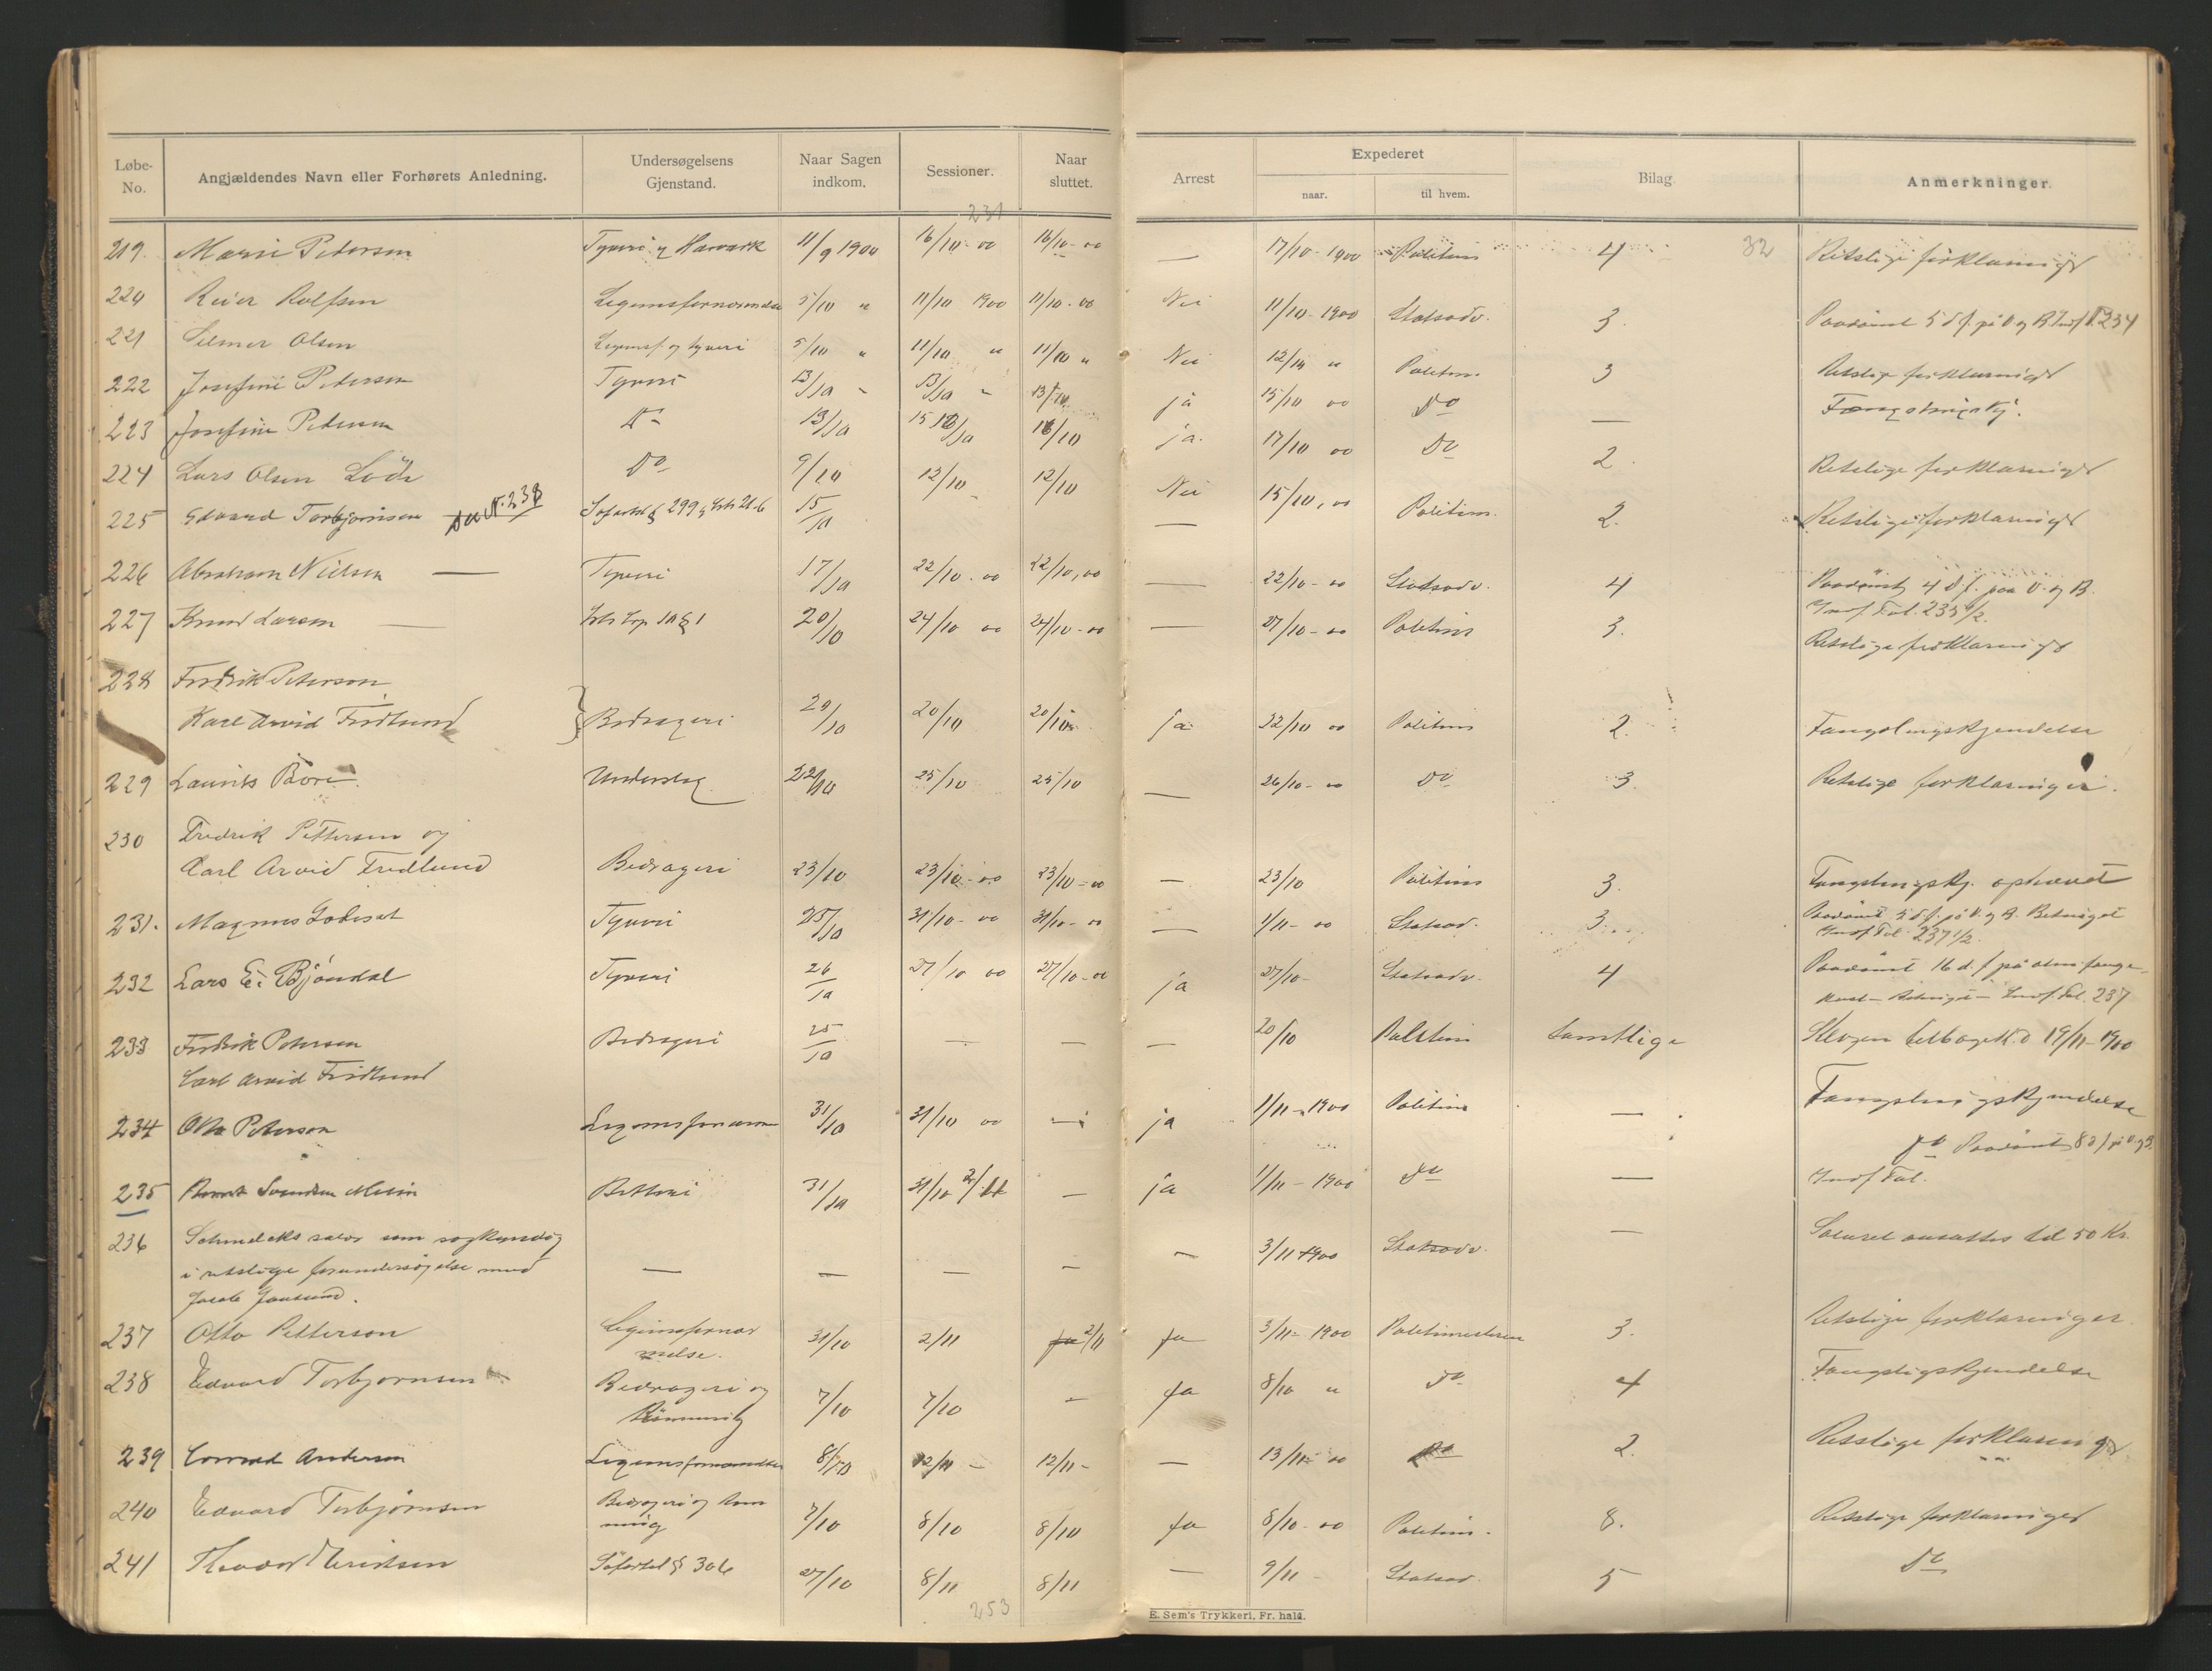 Løbe-No. Angjældendes Navn eller Forhørets Anledning. Undersøgelsens Gjenstand. Naar Sagen indkom. Sessioner. Naar sluttet. Arrest Expederet naar. til hvem. Bilag. Anmerkninger.
231
32
219. Marie Pedersen Tyveri 11/9 1900 16/10 00 16/10-00 — 17/10-1900 Politim 4 Retslige forklaringr
220 Reier Rolfsen Legemsfornærmelse 5/10 " 11/10 1900 11/10-00 Nei 11/10-1900 Statsadv. 3. Paadømt 5 d f. på V og B
221 Selmer Olsen Legemsf og tyveri 5/10 " 11/10 " 11/10 " Nei 12/10 " Politim. 3 Retslige forklaringr
222 Josefine Petersen Tyveri 13/10 - 13/10 - 13/10 ja 15/10 00 Do — Fængslingskj.
223 Josefine Petersen Do 13/10 16/10 ja. 17/10 00 Do 2. Retslige forklaringr
224 Lars Olsen 9/10 12/10 12/10 Nei 15/10,00 Politim. 2. Retslige forklaringr
225 Edvard Torbjørnsen se N. 238 Søfartsl § 299 15/10 —
226 Abraham Nielsen — Tyveri 17/10 22/10-00 22/10,00 — 22/10-00 Statsadv. 4 Paadømt 4 d f. paa V. og B.
227 Knud Larsen — 20/10 24/10 00 24/10-00 — 27/10-00 Politim 3. Retslige forklaringr
228 Fredrik Petersen
Karl Arvid Fredlund } Bedrageri 20/10 20/10 20/10 ja 22/10 00 Politim 2. Fængslingskjendelse
229 Laurits Underslag 22/10 25/10 25/10 — 26/10-00 Do 3. Retslige forklaringer.
230 Fredrik Pettersen og
Carl Arvid Fredlund Bedrageri 23/10 23/10-00 23/10-00 — 23/10 Politim 3. Fængslingskj. ophævet
231. Magnus Tyveri 25/10 31/10-00 31/10-00 — 1/11-00 Statsad. 3. Paadømt 5 d f. på V. og B. Betinget
Indf Fol. 237 1/2.
232 Lars E. Bjöndal Tyveri 26/10 27/10 00 27/10-00 ja 27/10- Statsadv. 4 Paadømt 16 d. f på alm. fange-
kost - Indf. Fol. 237
233 Fredrik Petersen Bedrageri 25/10 — — — 20/10 Politim Samtlige 19/11-1900
Carl Arvid Fredlund
234 Otto Peterson Legemsfornærm 31/10 31/10 00 — ja 1/11-1900 Politim — Fængslingskjendelse
235 Svendsen Betleri 31/10 31/10 — ja 1/11-1900 Do — Do Paadømt 8 d f på V. og B.
Indf Fol.
236 Schmelcks salær som sagkyndig
i retslige forundersøgelse mod — — — — — 3/11 1900 Statsadv. — Salæret ansattes til 50 Kr.
Jacob
237 Otto Petterson Legemsfornær
melse. 31/10 2/11 2/11 Ja 3/11-1900 Politimesteren 3. Retslige forklaringer.
238 Edvard Torbjørnsen Bedrageri og
Rømning 7/10 7/10 — Ja 8/10 " Do 4 Fængsligskjendelse
239 Conrad Andersen Legemsfornærmelse 8/10 12/11 - 12/11 - — 13/11-00 Do 2. Retslige forklaringr
240 Edvard Torbjørnsen Bedrageri og Røm
ning 7/10 8/10 8/10 Ja 8/10-00 Politim. 8. Retslige forklaringer
241 Theodor Søfartsl § 306 27/10 8/11 8/11 — 9/11 - Statsad. 5 Do
253
E. Sem's Trykkeri, Fr. hald.